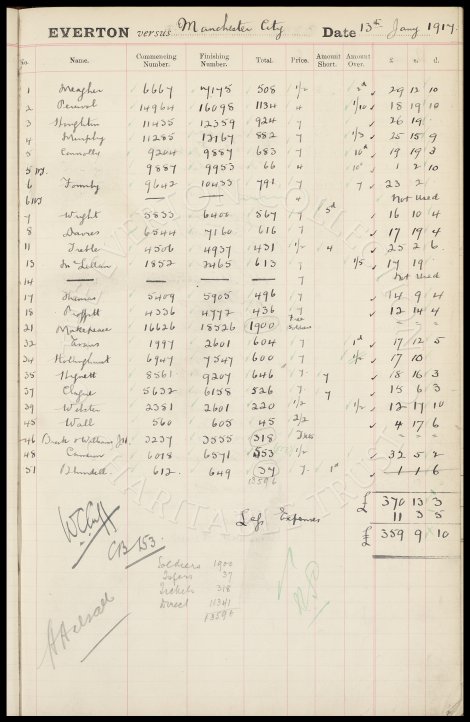 EVERTON versus Manchester City Date 13th Jany 1917.
No. Name. Commencing Number. Finishing Number. Total. Price. Amount Short. Amount Over. £ s. d.
1 Meagher 6667 7175 508 1/2 2d 29 12 10
2 Percival 14964 16098 1134 4 1/10 18 19 10
3 Houghton 11435 12359 924 7 26 19
4 Murphy 11285 12167 882 7 1/3 25 15 9
5 Connolly 9204 9887 683 7 10d 19 19 3
9887 9953 66 4 10d 1 2 10
6 Formby 9642 10433 791 7 7 23 2
4 Not used
7 Wright 5833 6400 567 7 5d 16 10 4
8 Davies 6544 7160 616 7 17 19 4
11 4506 4937 431 1/2 4 25 2 6
13 McLellan 1852 2465 613 7 1/5 17 19
14 7 Not used
17 Thomas 5409 5905 496 7 14 9 4
18 Proffitt 4336 4772 436 7 12 14 4
21 Makepeace 16626 18526 1900 Free
32 Evans 1997 2601 604 7 1d 17 12 5
34 Hollinghurst 6947 7547 600 7 1/2 17 10
35 Hignett 8561 9207 646 7 7 18 16 3
37 Clague 5632 6158 526 7 7 15 6 3
39 Webster 2381 2601 220 1/2 1/2 12 17 10
45 Wall 560 605 45 2/2 4 17 6
46 3237 3555 318
48 Cameron 6018 6571 553 1/2 32 5 2
51 Blundell 612 649 37 7 1d 1 1 6
13596
£ 370 13 3
Less Expenses 11 3 5
£ 359 9 10
CB 153.
Soldiers 1900
37
Tickets 318
Direct 11341
13596